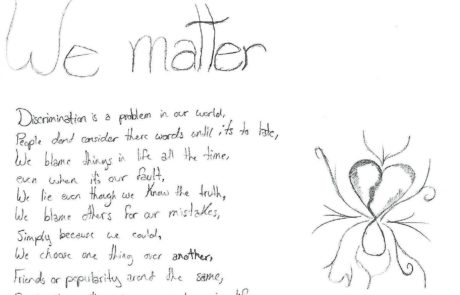 We matter
Discrimination is a problem in our world,
People dont consider there words until it's to late,
We blame things in life all the time,
even when it's our fault,
We lie even though we know the truth,
We blame others for our mistakes,
Simply because we could,
We choose one thing over another,
Friends or popularity arent the same,